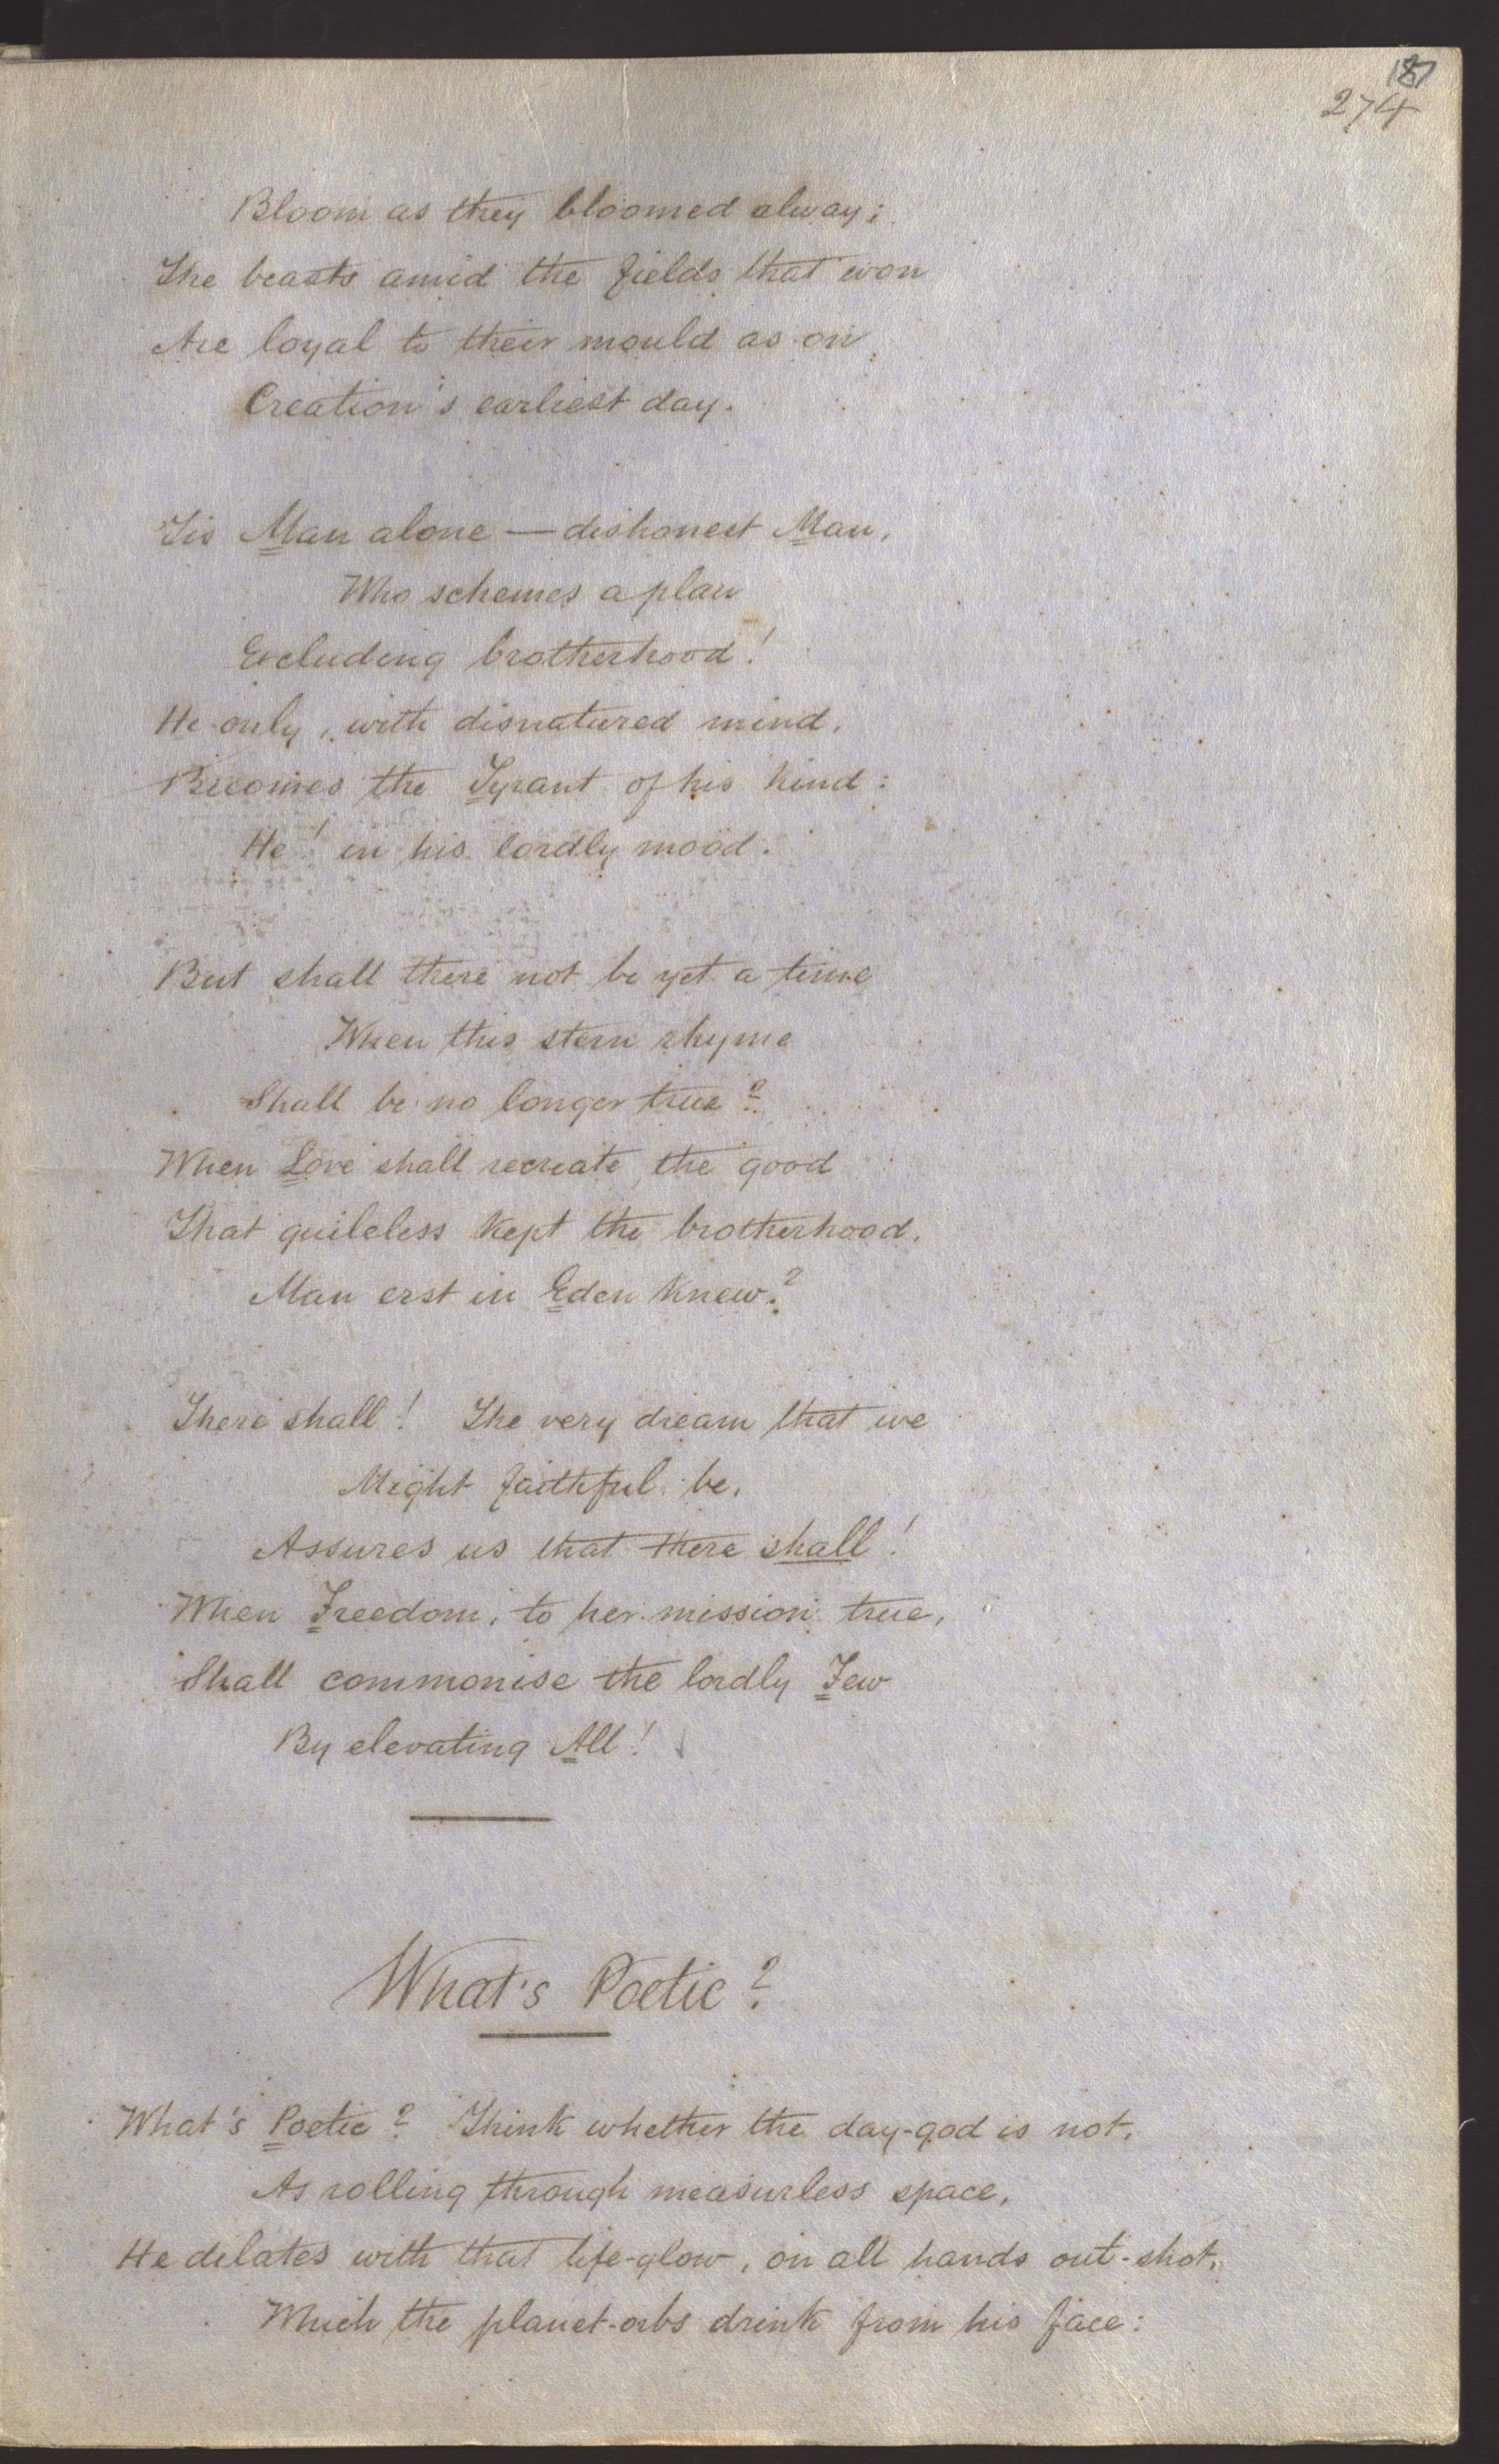 187
274
Bloom as they bloomed alway;
The beasts amid the fields that won
Are loyal to their mould as on
Creation's earliest day.
'Tis Man alone — dishonest Man,
Who schemes a plan
Excluding brotherhood!
He only, with disnatured mind,
Becomes the Tyrant of his kind:
He! in his lordly mood.
But shall there not be yet a time
When this stern rhyme
Shall be no longer true?
When Love shall recreate the good
That guileless kept the brotherhood,
Man erst in Eden knew?
There shall! The very dream that we
Might faithful be,
Assures us that there shall!
When Freedom, to her mission true,
Shall commonise the lordly Few
By elevating All!
What's Poetic?
What's Poetic? Think whether the day-god is not,
As rolling through measurless space,
He dilates with that life-glow, on all hands out-shot,
Which the planet-orbs drink from his face: